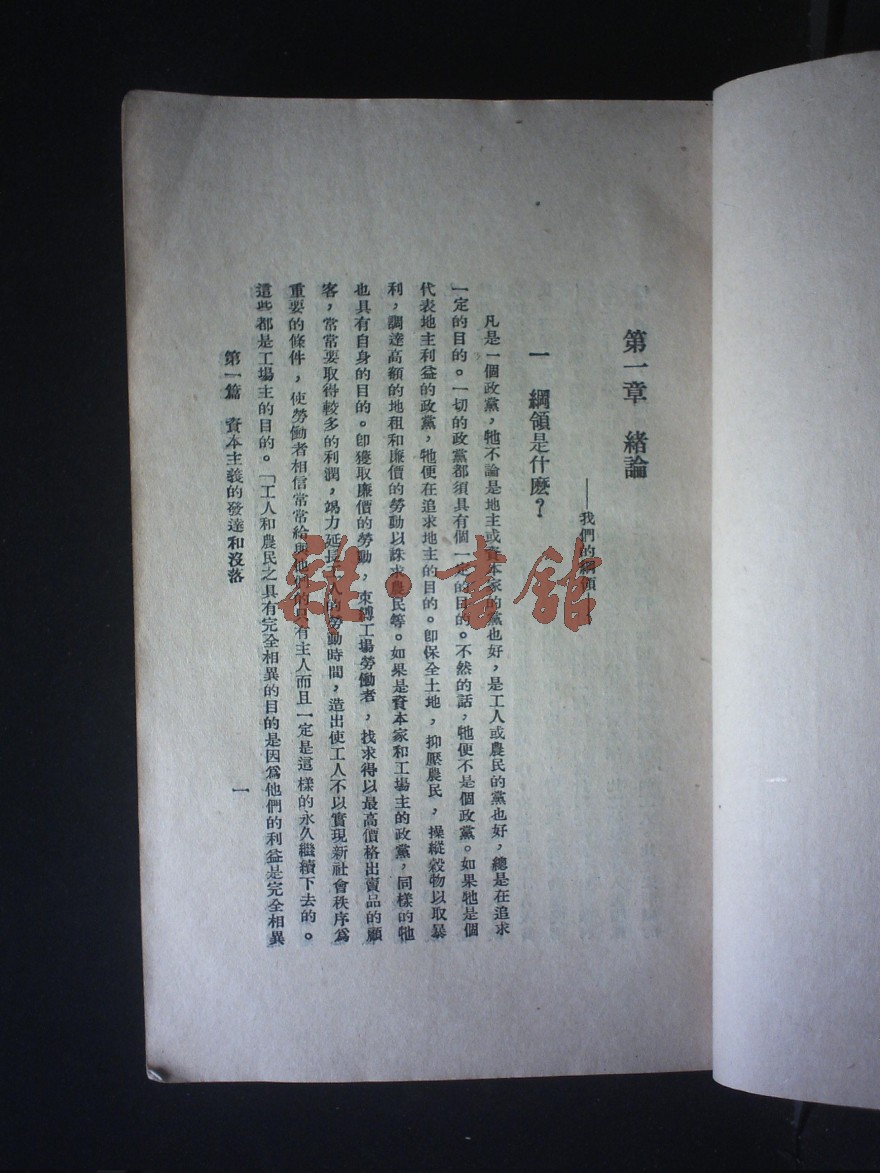 第一章　緒論
——我們的綱領——
一　綱領是什麽？
凡是一個政黨，牠不論是地主或資本家的黨也好，是工人或農民的黨也好，總是在追求
一定的目的。一切的政黨都須具有個一定的目的。不然的話，牠便不是個政黨。如果牠是個
代表地主利益的政黨，牠便在追求地主的目的。卽保全土地，抑壓農民，操縱穀物以取暴
利，調達高額的地租和廉價的勞動以誅求農民等。如果是資本家和工場主的政黨，同樣的牠
也具有自身的目的。卽獲取廉價的勞動，束縛工場勞働者，找求得以最高價格出賣品的顧
客，常常要取得較多的利潤，竭力延長工人的勞動時間，造出使工人不以實現新社會秩序爲
重要的條件，使勞働者相信常常給與他們的只有主人而且一定是這樣的永久繼續下去的。
這些都是工場主的目的。「工人和農民之具有完全相異的目的是因爲他們的利益是完全相異
第一篇　資本主義的發達和沒落
一
雜·書館